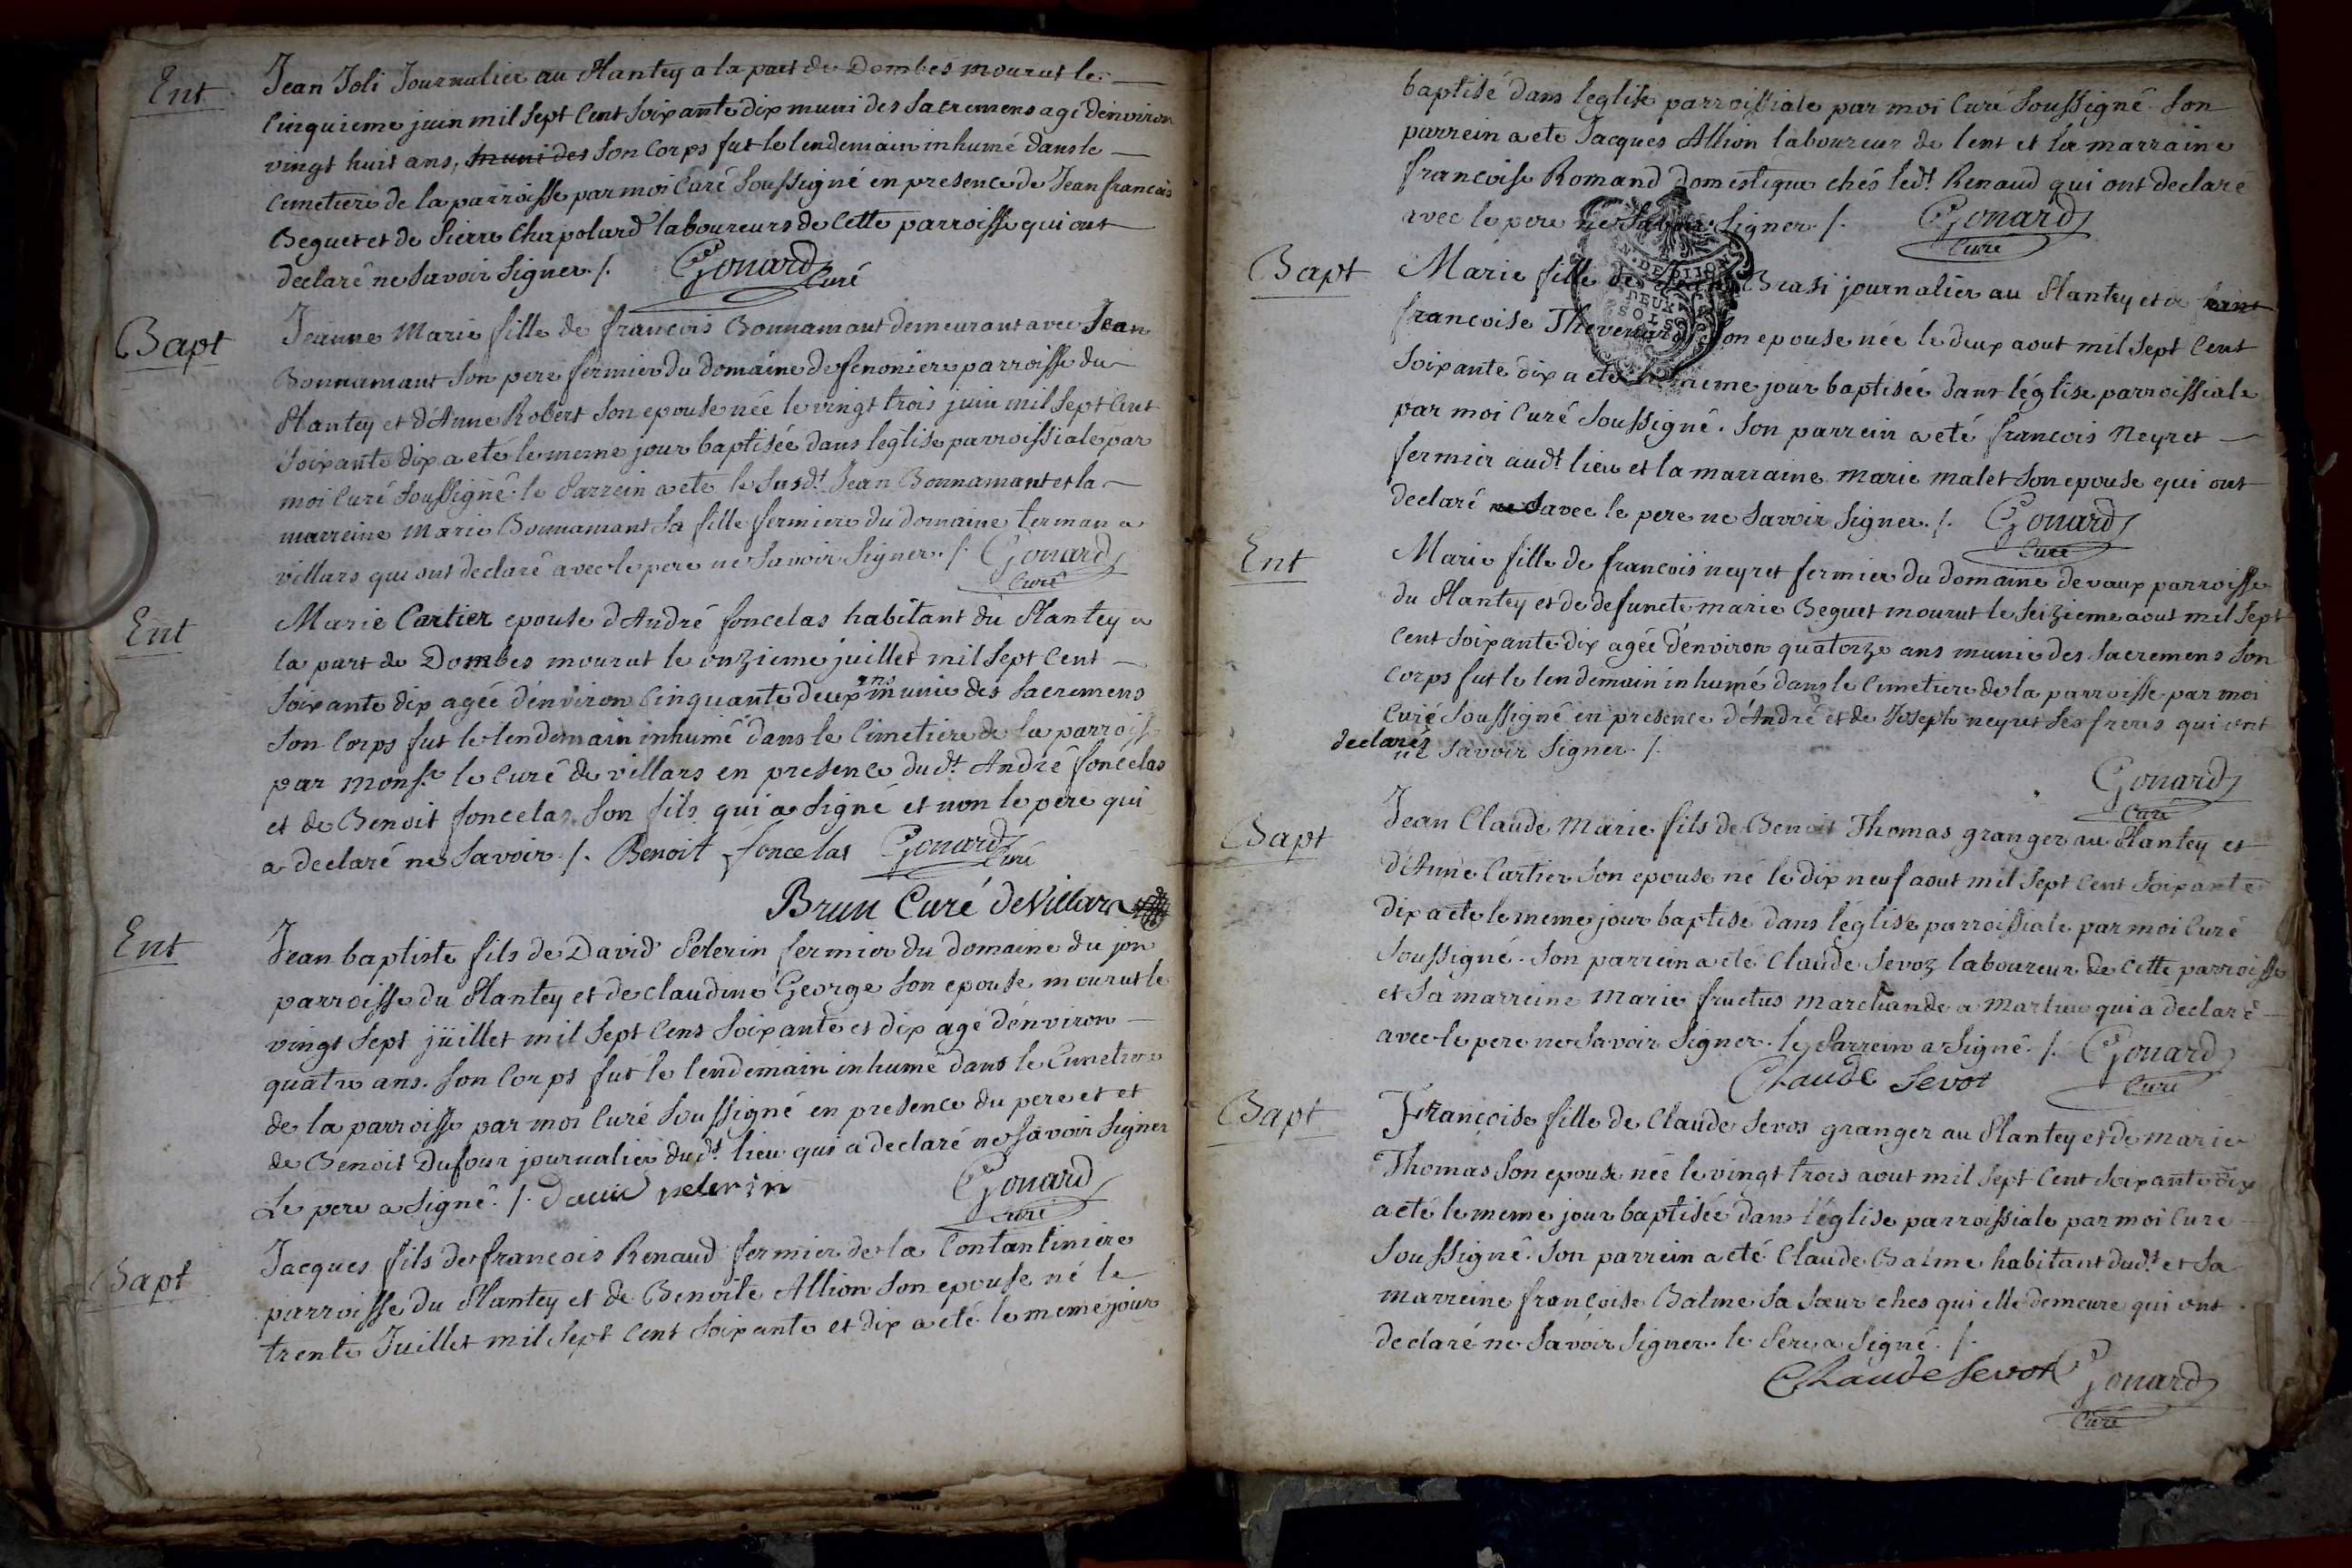 Ent
Jean Joli Journalier au Plantey a la part de Dombes mourut le
cinquieme juin mil sept cent soixante dix muni des sacremens agé d'environ
vingt huit ans, muni des son corps fut le lendemain inhumé dans le
cimetiere de la parroisse par moi curé soussigné en presence de Jean francois
Beguet et de Pierre Chapolard laboureurs de cette parroisse qui ont
declaré ne savoir signer ./. Gonard
Curé
Bapt
Jeanne Marie fille de francois Bonnamant demeurant avec Jean
Bonnamant son pere fermier du domaine de fenoniere parroisse du
Plantey et d'Anne Robert son epouse née le vingt trois juin mil sept cent
soixante dix a eté le meme jour baptisée dans leglise parroissiale par
moi curé soussigné. le Parrein a eté le susdt Jean Bonnamant et la
marreine Marie Bonnamant sa fille fermiere du domaine terman a
villars qui ont declaré avec le pere ne savoir signer ./. Gonard
Curé
Ent
Marie Cartier epouse d'André foncelas habitant du Plantey a
la part de Dombes mourut le onzieme juillet mil sept cent
soixante dix agée d'environ cinquante deux ans munie des sacremens
son corps fut le lendemain inhumé dans le cimetiere de la parroisse
par monsr le curé de villars en presence dudt André foncelas
et de Benoit foncelas son fils qui a signé et non le pere qui
a declaré ne savoir ./. Benoit foncelas Gonard
Curé
Brun Curé de Villars
Ent
Jean baptiste fils de David Pelerin fermier du domaine du jon
parroisse du Plantey et de claudine George son epouse mourut le
vingt sept juillet mil sept cens soixante et dix agé d'environ
quatre ans. son corps fut le lendemain inhumé dans le cimetiere
de la parroisse par moi curé soussigné en presence du pere et et
de Benoit Dufour journalier dudt lieu qui a declaré ne savoir signer
Le pere a signé ./. David pelerin Gonard
Curé
Bapt
Jacques fils de francois Renaud fermier de la Contantiniere
parroisse du Plantey et de Benoite Allion son epouse né le
trente Juillet mil sept cent soixante et dix a eté le meme jour
baptisé dans leglise parroissiale par moi curé soussigné. son
parrein a ete Jacques Allion laboureur de lent et la marraine
francoise Romand domestique chés ledt Renaud qui ont declaré
avec le pere ne savoir signer ./. Gonard
Curé
N. DE DIJON
DEUX
SOLS
Bapt
Marie fille de Brasi journalier au Plantey et de
francoise Thevenard son epouse née le deux aout mil sept cent
soixante dix a eté le meme jour baptisée dans léglise parroissiale
par moi curé soussigné. son parrein a eté francois Neyret
fermier audt lieu et la marraine marie malet son epouse qui ont
declaré ne S avec le pere ne savoir signer ./. Gonard
Curé
Ent
Marie fille de francois neyret fermier du domaine de vaux parroisse
du Plantey et de defuncte marie Beguet mourut le seizieme aout mil sept
cent soixante dix agée d'environ quatorze ans munie des sacremens son
corps fut le lendemain inhumé dans le cimetiere de la parroisse par moi
curé soussigné en presence d'André et de Joseph neyret ses freres qui ont
declarés
ne savoir signer ./.
Gonard
Curé
Bapt
Jean Claude Marie fils de Benoit Thomas granger au Plantey et
d'Anne Cartier son epouse né le dix neuf aout mil sept cent soixante
dix a eté le meme jour baptisé dans l'église parroissiale par moi curé
soussigné. son parrein a eté Claude Sevoz laboureur de cette parroisse
et sa marreine Marie fructus marchande a Marlieu qui a declaré
avec le pere ne savoir signer. le Parrein a signé ./. Gonard
Claude Sevot
Curé
Bapt
Francoise fille de Claude Sevos granger au Plantey et de marie
Thomas son epouse née le vingt trois aout mil sept cent soixante dix
a eté le meme jour baptisée dans l'église parroissiale par moi curé
soussigné. son parrein a eté Claude Balme habitant dudt et sa
marreine françoise Balme sa sœur ches qui elle demeure qui ont
declaré ne savoir signer. le Pere a signé ./.
Claude Sevot Gonard
Curé